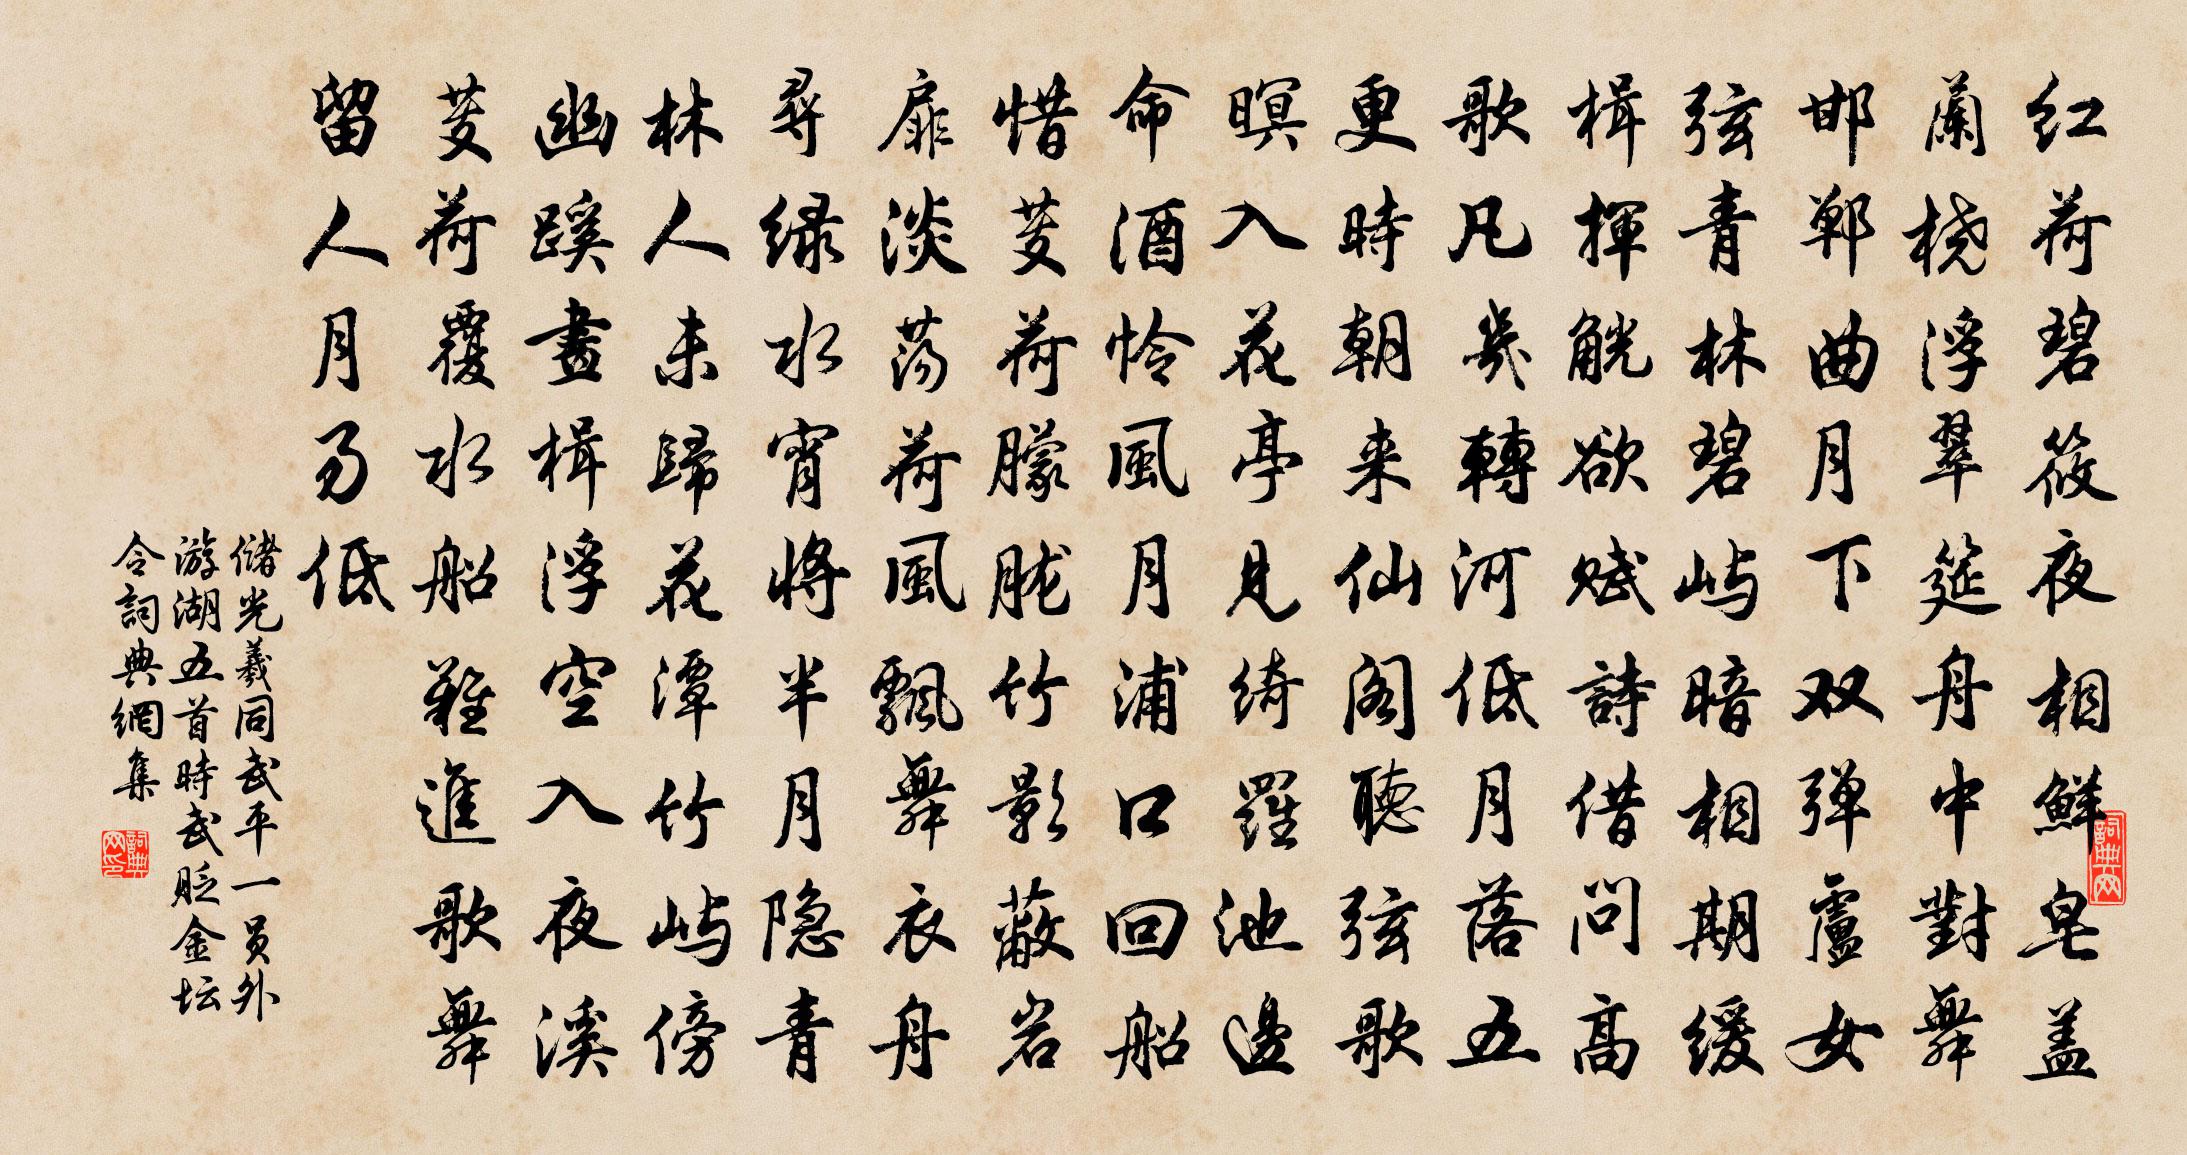 红荷碧筱夜相鲜皂盖
蘭桡浮翠筵舟中對舞
邯鄲曲月下双弹盧女
弦青林碧屿暗相期缓
楫揮觥欲赋詩借问高
歌凡幾轉河低月落五
更時朝来仙阁聽弦歌
暝入花亭見绮羅池邊
命酒怜風月浦口回船
惜芰荷朦胧竹影蔽岩
扉淡荡荷風飄舞衣舟
尋绿水宵將半月隐青
林人未歸花潭竹屿傍
幽蹊畫楫浮空入夜溪
芰荷覆水船難進歌舞
留人月易低
储光羲同武平一员外
游湖五首時武贬金坛
令詞典網集
詞典网
詞典网印